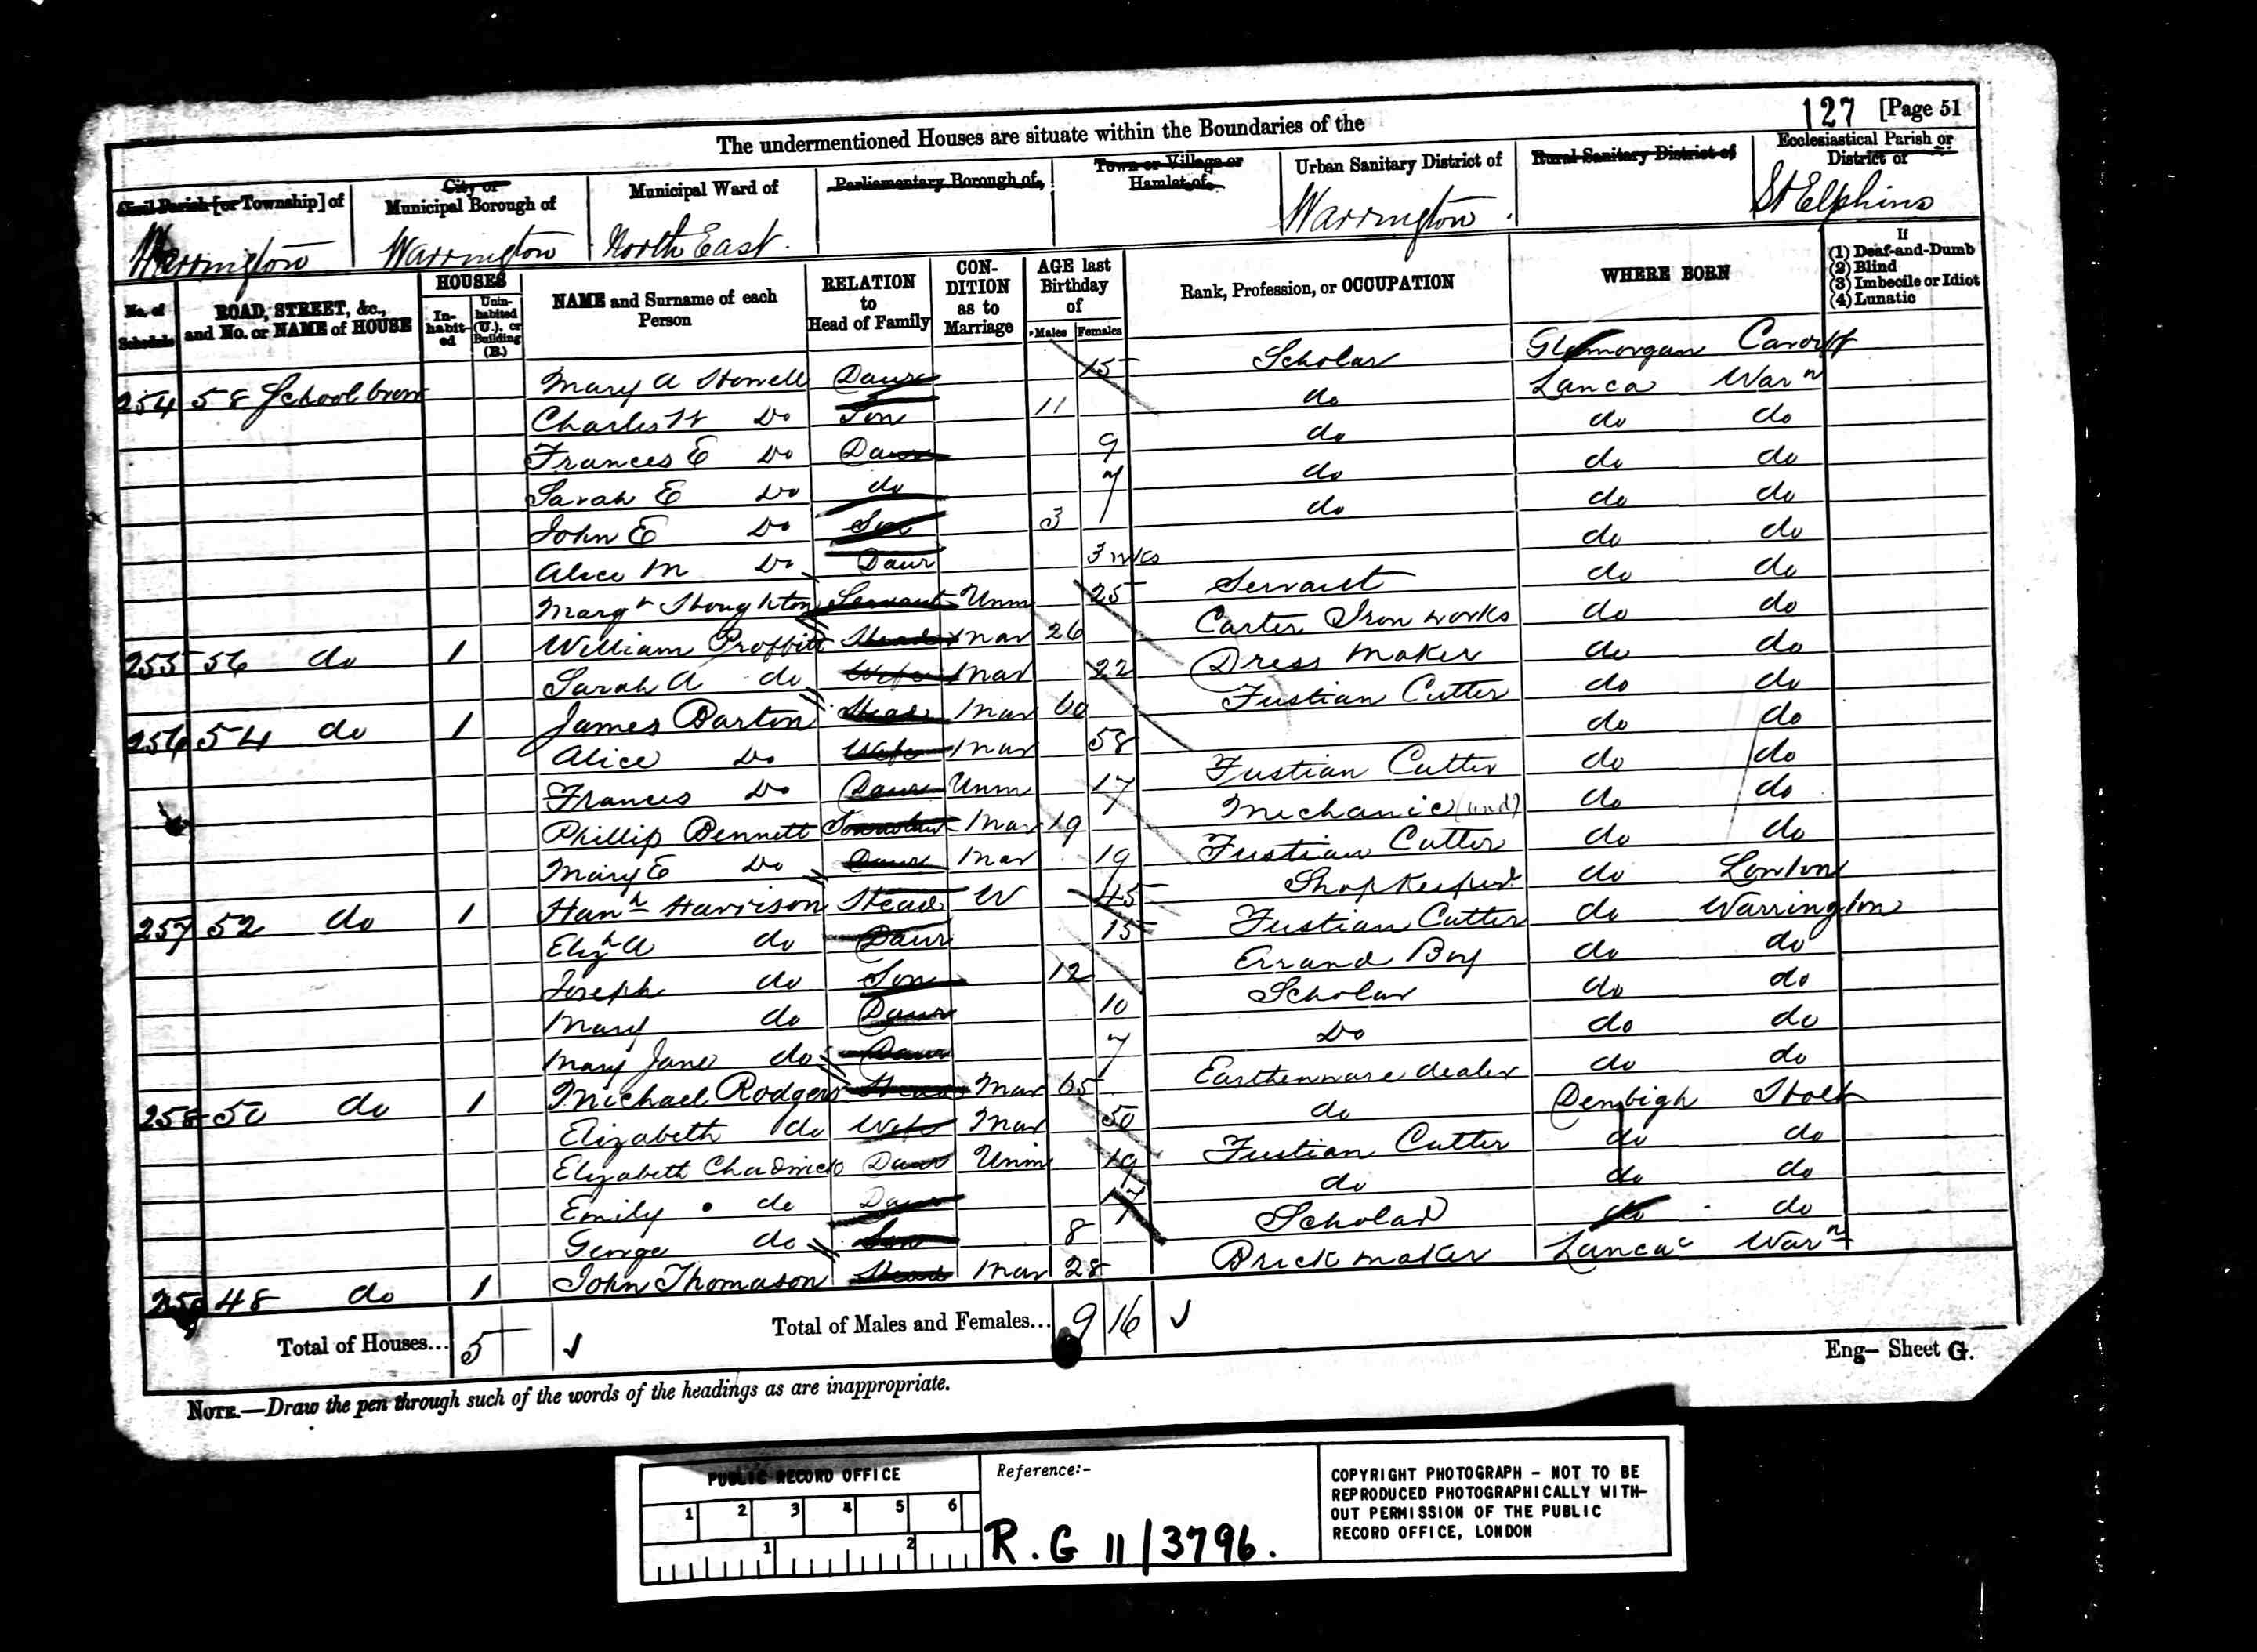 127 [Page 51
The undermentioned Houses are situate within the Boundaries of the
Civil Parish [or Township] of
City or Municipal Borough of
Municipal Ward of
Parliamentary Borough of
Town or Village or Hamlet of
Urban Sanitary District of
Rural Sanitary District of
Ecclesiastical Parish or District of
Warrington Warrington North East Warrington St Elphins
No. of Schedule
ROAD, STREET, &c., and No. or NAME of HOUSE
HOUSES
In-habit-ed
Unin-habited (U.), or Building (B.)
NAME and Surname of each Person
RELATION to Head of Family
CON-DITION as to Marriage
AGE last Birthday of
Males Females
Rank, Profession, or OCCUPATION
WHERE BORN
If
(1) Deaf-and-Dumb
(2) Blind
(3) Imbecile or Idiot
(4) Lunatic
254 58 School brow Mary A Daur 15 Scholar Glamorgan Cardiff
Charles H Do Son 11 do Lanca Warn
Frances E Do Daur 9 do do do
Sarah E Do do 7 do do do
John E Do Son 3 do do do
Alice M Do Daur 3 wks do do
Margt Houghton Servant Unm 25 Servant do do
255 56 do 1 William Proffitt Head Mar 26 Carter Iron works do do
Sarah A do Wife Mar 22 Dress Maker do do
256 54 do 1 James Barton Head Mar 60 Fustian Cutter do do
Alice Do Wife Mar 58 do do
Frances Do Daur Unm 17 Fustian Cutter do do
Phillip Bennett Mar 19 Mechanic do do
Mary E Do Daur Mar 19 Fustian Cutter do do
257 52 do 1 Hanh Harrison Head W 45 Shopkeeper do London
Elizh A do Daur 15 Fustian Cutter do Warrington
Joseph do Son 12 Errand Boy do do
Mary do Daur 10 Scholar do do
Mary Jane do Daur 7 Do do do
258 50 do 1 Michael Rodgers Head Mar 65 Earthenware dealer do do
Elizabeth do Wife Mar 50 do Denbigh Holt
Elizabeth Chadwick Daur Unm 19 Fustian Cutter do do
Emily do Daur 17 do do do
George do Son 8 Scholar do do
259 48 do 1 John Thomason Head Mar 28 Brick maker Lancac Warn
Total of Houses... 5
Total of Males and Females... 9 16
Eng— Sheet G.
NOTE.—Draw the pen through such of the words of the headings as are inappropriate.
PUBLIC RECORD OFFICE
1 2 3 4 5 6
1 2
Reference:-
R.G 11/3796.
COPYRIGHT PHOTOGRAPH - NOT TO BE
REPRODUCED PHOTOGRAPHICALLY WITH-
OUT PERMISSION OF THE PUBLIC
RECORD OFFICE, LONDON